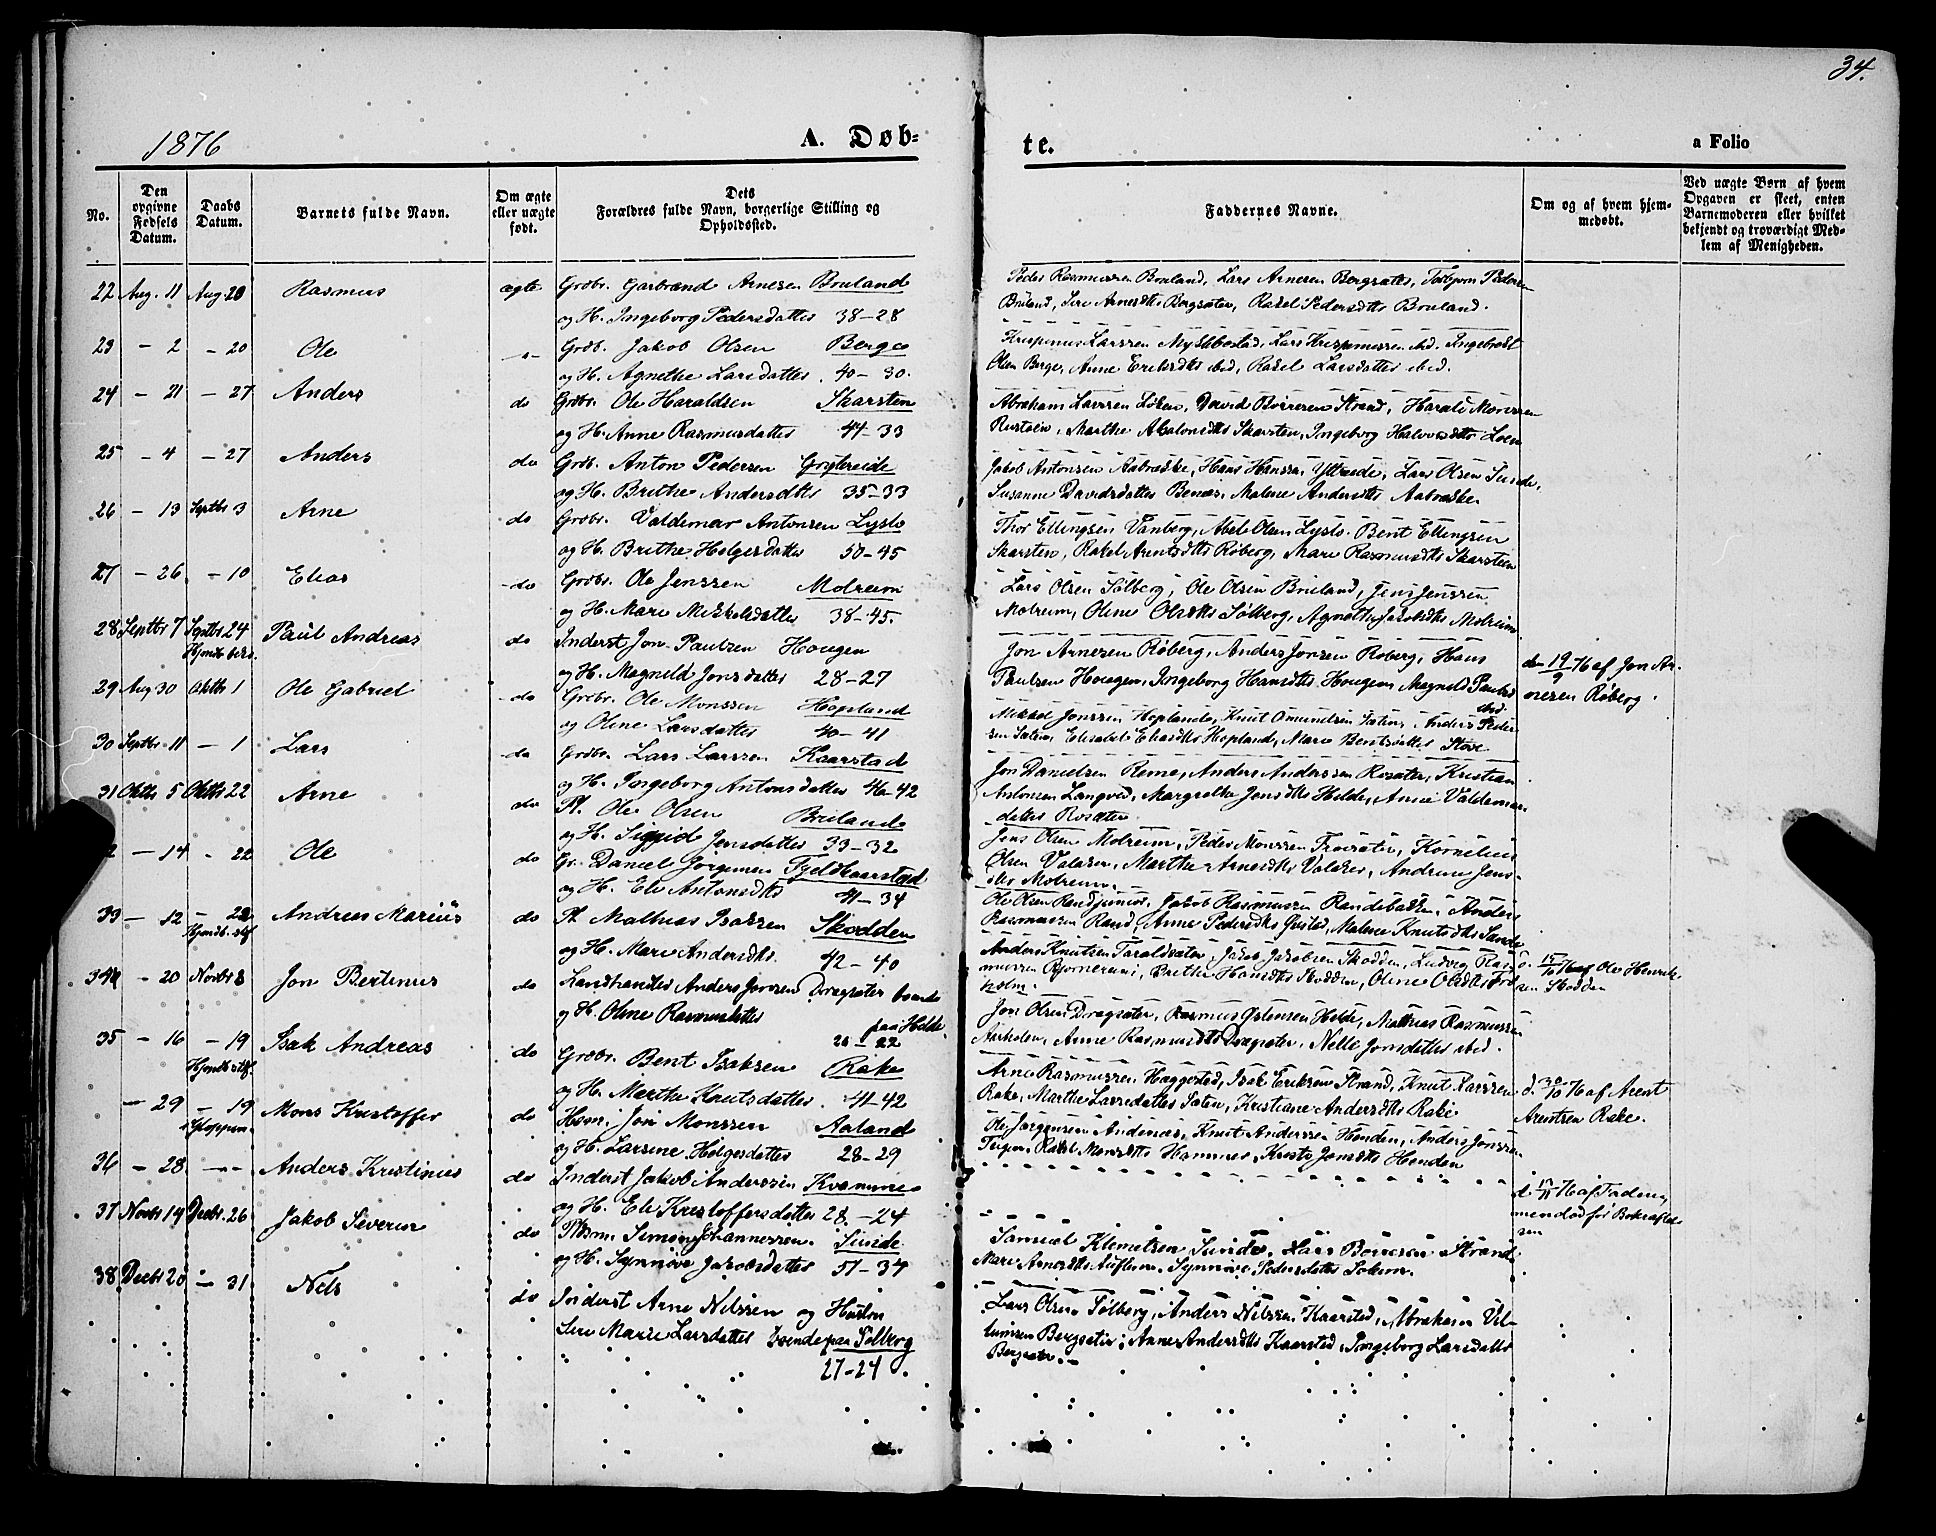 34.
1876
A. Døb-
te.
a Folio
No.
Den opgivne Fødsels Datum.
Daabs Datum.
Barnets fulde Navn.
Om ægte eller uægte født.
Dets Forældres fulde Navn, borgerlige Stilling og Opholdssted.
Faddernes Navne.
Om og af hvem hjemmedøbt.
Ved uægte Børn af hvem Opgaven er skeet, enten Barnemoderen eller hvilket bekjendt og troværdigt Medlem af Menigheden.
22 Aug. 11 Aug. 20 Rasmus ægte Grdbr. Garbrand Arnesen Bruland
og H. Ingeborg Pedersdatter 38-28
Peder Rasmussen Bruland, Lars Arnesen Bergsæter, Torbjørn Pedersen
Bruland, Siri Arnesdtr Bergsæter, Rakel Pedersdtr Bruland.
23 - 2 - 20 Ole -"- Grdbr. Jakob Olsen Berge
og H. Agnethe Larsdatter 40-30.
Krispinus Larssen Myklebostad, Lars Krispinussen ibd. Ingebrigt
Olsen Berge, Anne Eriksdtr ibid, Rakel Larsdatter ibid.
24 - 21 - 27 Anders do Grdbr. Ole Haraldsen Skarsten
og H. Anne Rasmusdatter 44-33
Abraham Larssen Løken, David Børresen Strand, Harald Monssen
Rustøen, Marthe Absalonsdtr Skarsten, Ingeborg Halvorsdtr Loen
25 - 4 - 27 Anders do Grdb. Anton Pedersen Grytereide
og H. Brithe Andersdtr 35-33
Jakob Antonsen Aabrekke, Hans Hanssen Yttreeide, Lars Olsen Sunde,
Susanne Davidsdatter Benæs, Malene Andersdtr Aabrekke.
26 - 13 Septbr 3 Arne do Grdbr. Valdemar Antonsen Lyslo
og H. Brithe Helgesdatter 50-45
Thor Ellingsen Vanberg, Abel Olsen Lyslo. Bent Ellingsen
Skarsten, Rakel Arentsdtr Røberg, Mari Rasmusdtr Skarsten
27 - 26 - 10 Elias do Grdbr. Ole Jenssen Molreim
og H. Mari Mikkelsdatter 38-45.
Lars Olsen Solberg, Ole Olsen Bruland, Jens Jenssen
Molreim, Oline Olsdtr Solberg, Agnethe Jacobsdtr Molreim
28 Septbr 7 Septbr 24 Paul Andreas do Inderst Jon Paulsen Hougen
Hjmdb beks.
og H. Magnild Jonsdatter 28-27
Jon Arnesen Røberg, Anders Jonsen Røberg, Hans
Paulsen Hougen, Ingeborg Hansdtr Hougen, Magnild Paulsd
ibid
den 19/9 76 af Jon Ar-
nesen Røberg.
29 Aug 30 Oktbr 1 Ole Gabriel do Grdbr. Ole Monssen Hopland
og Oline Larsdatter 40-41
Mikkel Jonssen Hopland, Knut Omundsen Sæten, Anders Peder-
sen Sæten, Elisabet Eliasdtr Hopland, Mari Bentsdatter Støve
30 Septbr 11 - 1 Lars do Grdbr. Lars Larssen Kaarstad
og H. Ingeborg Antonsdatter 46-42
Jon Danielsen Reme, Anders Anderssen Rosæter, Kristian
Antonsen Langved, Margrethe Jensdtr Hilde, Anne Valdemars-
datter Rosæter.
31 Oktbr 5 Oktbr 22 Arne do Pl. Ole Olsen Bruland
og H. Sigrid Jensdatter 33-32
Jens Olsen Molreim, Peder Monssen Frosæter, Kornelius
Olsen Valaker, Marthe Arnesdtr Valaker, Andrine Jens-
dtr Molreim.
2 - 14 - 22 Ole do Gr. Daniel Jørgensen Fjeldkaarstad
og H. Eli Antonsdtr 41-34
Ole Olsen Rand junior, Jakob Rasmussen Randebakken, Anders
Rasmussen Rand, Anne Pedersdtr Gristed, Malene Knutsdtr Sande
33 - 12 - 22 Andreas Marius do Pl. Mathias Isaksen Skodden
Hjmdb. stf.
og H. Mari Andersdtr. 42-40
Anders Knutsen Taraldsæter, Jakob Jakobsen Skodden, Ludvig Ras-
mussen Bjørnereim, Brithe Hansdtr Skodden, Oline Olsdtr Frø-
holm.
d. 15/10 76 af Ole Henrik-
sen Skodden
34 - 20 Novbr 8 Jon Bertinus do Landhandler Anders Jonsen Dragsæter boende
og H. Oline Rasmusdatter paa Hilde.
28-22
Jon Olsen Dragsæter, Rasmus Østensen Hilde, Mathias Rasmussen
Aarholen, Anne Rasmusdtr Dragsæter, Nelle Jonsdatter ibid.
35 - 16 - 19 Isak Andreas do Grdbr. Bent Isaksen Rake
Hjmdb stf.
og H. Marthe Knutsdatter. 41-42
Arne Rasmussen Heggestad, Isak Eriksen Strand, Knut Larssen
Rake, Marthe Larsdatter Sæten, Kristiane Andersdtr Rake
d. 30/10 76 af Arent
Arentsen Rake.
- 29 - 19 Mons Kristoffer do Hsm. Jon Monssen Aaland
i Gloppen
og H. Larsine Helgesdatter 28-29
Ole Jørgensen Andenæs, Knut Anderssen Henden, Anders Jonssen
Teigen, Rakel Monsdtr Hammer, Kristi Jonsdtr Henden
36 - 28 -"- Anders Kristinus do Inderst Jakob Anderssen Kvamme
og H. Eli Kristoffersdatter 28.-24
37 Novbr 14 Decbr. 26 Jakob Severin do Plsm. Simon Johannessen Sunde
og H. Synnøve Jakobsdatter 51-34
Samuel Klemetsen Sunde, Lars Børresen Strand
Mari Arnesdtr Auflem, Synnøve Pedersdatter
38 Decbr 20 - 31 Nils do Inderst Arne Nilssen og Hustru
Siri Marie Larsdatter boende paa Solberg
27-24.
Lars Olsen Solberg, Anders Nilssen Kaarstad, Abraham Vil-
lumsen Bergsæter, Anne Andersdtr Kaarstad, Ingeborg Larsdatter
Bergsæter.